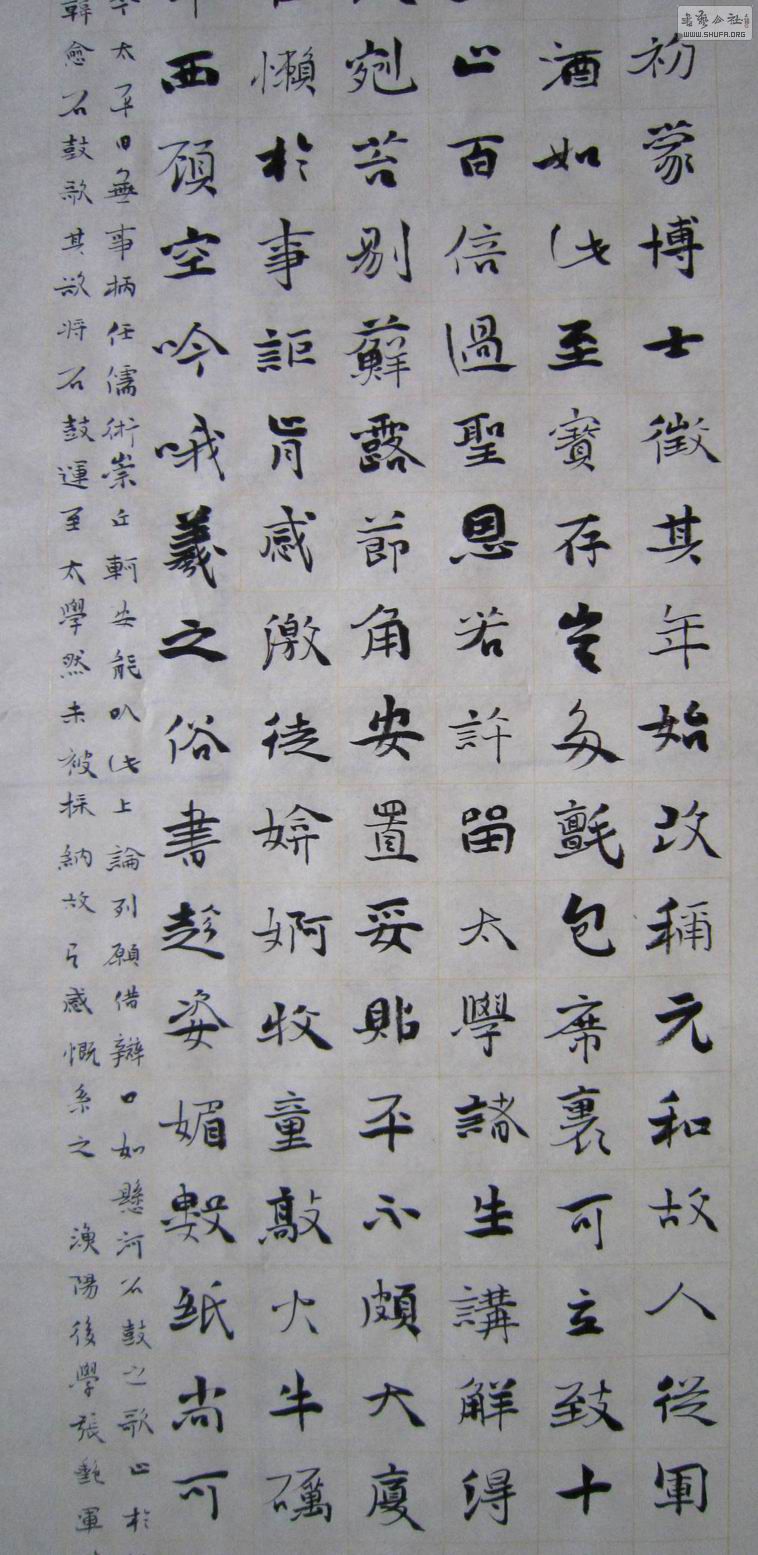 初蒙博士徵其年始改稱元和故人從軍
酒如此至寶存豈多氈包席裹可立致十
止百倍過聖恩若許留太學諸生講解得
剜苔剔蘚露節角安置妥貼平不頗大廈
懶於事詎肯感激徒媕婀牧童敲火牛礪
西顧空吟哦羲之俗書趁姿媚數紙尚可
太平日無事柄任儒術崇丘軻安能以此上論列願借辯口如懸河石鼓之歌止於
韓愈石鼓歌其欲將石鼓運至太學然未被採納故有感慨系之 漁陽後學張艷軍
書藝公社
WWW.SHUFA.ORG